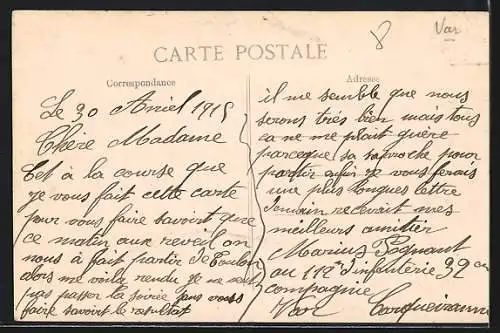 Var
8
CARTE POSTALE
Correspondance
Adresse
Le 30 Avriel 1915
Chère Madame
Cet à la course que
je vous fait cette carte
pour vous faire savoirt que
ce matin aux reveil on
nous à fait partir de Toulon
alors me voila rendu je ne veut
pas passer la soirée sans vous
faire savoirt le resultat
il me semble que nous
serons trés bien mais tous
ca ne me plait guère
parceque sa raproche pour
partir enfin je vous ferais
une plus longues lettre
demain recevait mes
meilleurs amitier
Marius
au 112 d'infenterie 32
compagnie
Var Carqueiranne